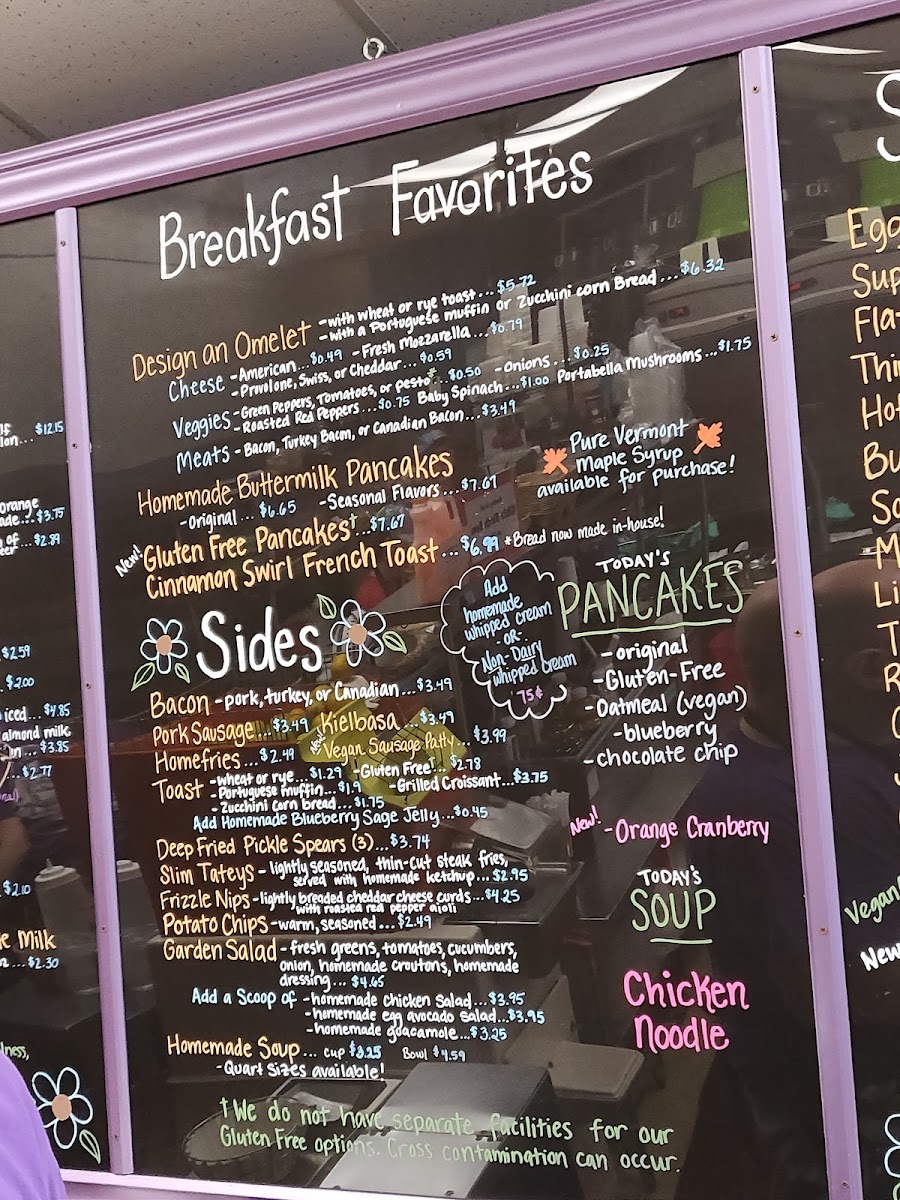 Breakfast Favorites
Design an Omelet -with wheat or rye toast... $5.72
-with a Portuguese muffin or Zucchini corn Bread ... $6.32
Cheese -American... $0.49 -Fresh Mozzarella ...$0.79
-Provolone, Swiss, or Cheddar... $0.59
Veggies -Green Peppers, Tomatoes, or pesto... $0.50 -Onions ...$0.25
-Roasted Red Peppers ....$0.75 Baby Spinach...$1.00 Portabella Mushrooms...$1.75
Meats -Bacon, Turkey Bacon, or Canadian Bacon...$3.49
Pure Vermont
Maple Syrup
available for purchase!
Homemade Buttermilk Pancakes
-Original ... $6.65 -Seasonal Flavors ...$7.67
New! Gluten Free Pancakes† ..$7.67
Cinnamon Swirl French Toast... $6.99 *Bread now made in-house!
Sides
Add
homemade
whipped cream
-OR-
Non-Dairy
whipped cream
75¢
Bacon -pork, turkey, or Canadian...$3.49
Pork Sausage ...$3.49 Kielbasa ...$3.49
Homefries...$2.49 New! Vegan Sausage Patty...$3.99
Toast -wheat or rye...$1.29 -Gluten Free†...$2.78
-Portuguese muffin...$1.9 -Grilled Croissant...$3.75
-Zucchini corn bread...$1.75
Add Homemade Blueberry Sage Jelly...$0.45
Deep Fried Pickle Spears (3)...$3.74
Slim Tateys -lightly seasoned, thin-cut steak fries,
served with homemade ketchup...$2.95
Frizzle Nips -lightly breaded cheddar cheese curds...$4.25
with roasted red pepper aioli
Potato Chips -warm, seasoned...$2.49
Garden Salad -fresh greens, tomatoes, cucumbers,
onion, homemade croutons, homemade
dressing... $4.65
Add a Scoop of -homemade chicken salad...$3.95
-homemade egg avocado salad...$3.95
-homemade guacamole...$3.25
Homemade Soup... cup $3.25 Bowl $4.59
-Quart Sizes available!
TODAY'S
PANCAKES
-original
-Gluten-Free
-Oatmeal (vegan)
-blueberry
-chocolate chip
New! -Orange Cranberry
TODAY'S
SOUP
Chicken
Noodle
†We do not have separate facilities for our
Gluten Free options. Cross contamination can occur.
$12.15
orange
$3.75
of
$2.89
$2.59
$2.00
iced... $4.85
almond milk
$3.85
$2.77
$2.10
Milk
$2.30
Vegan
New